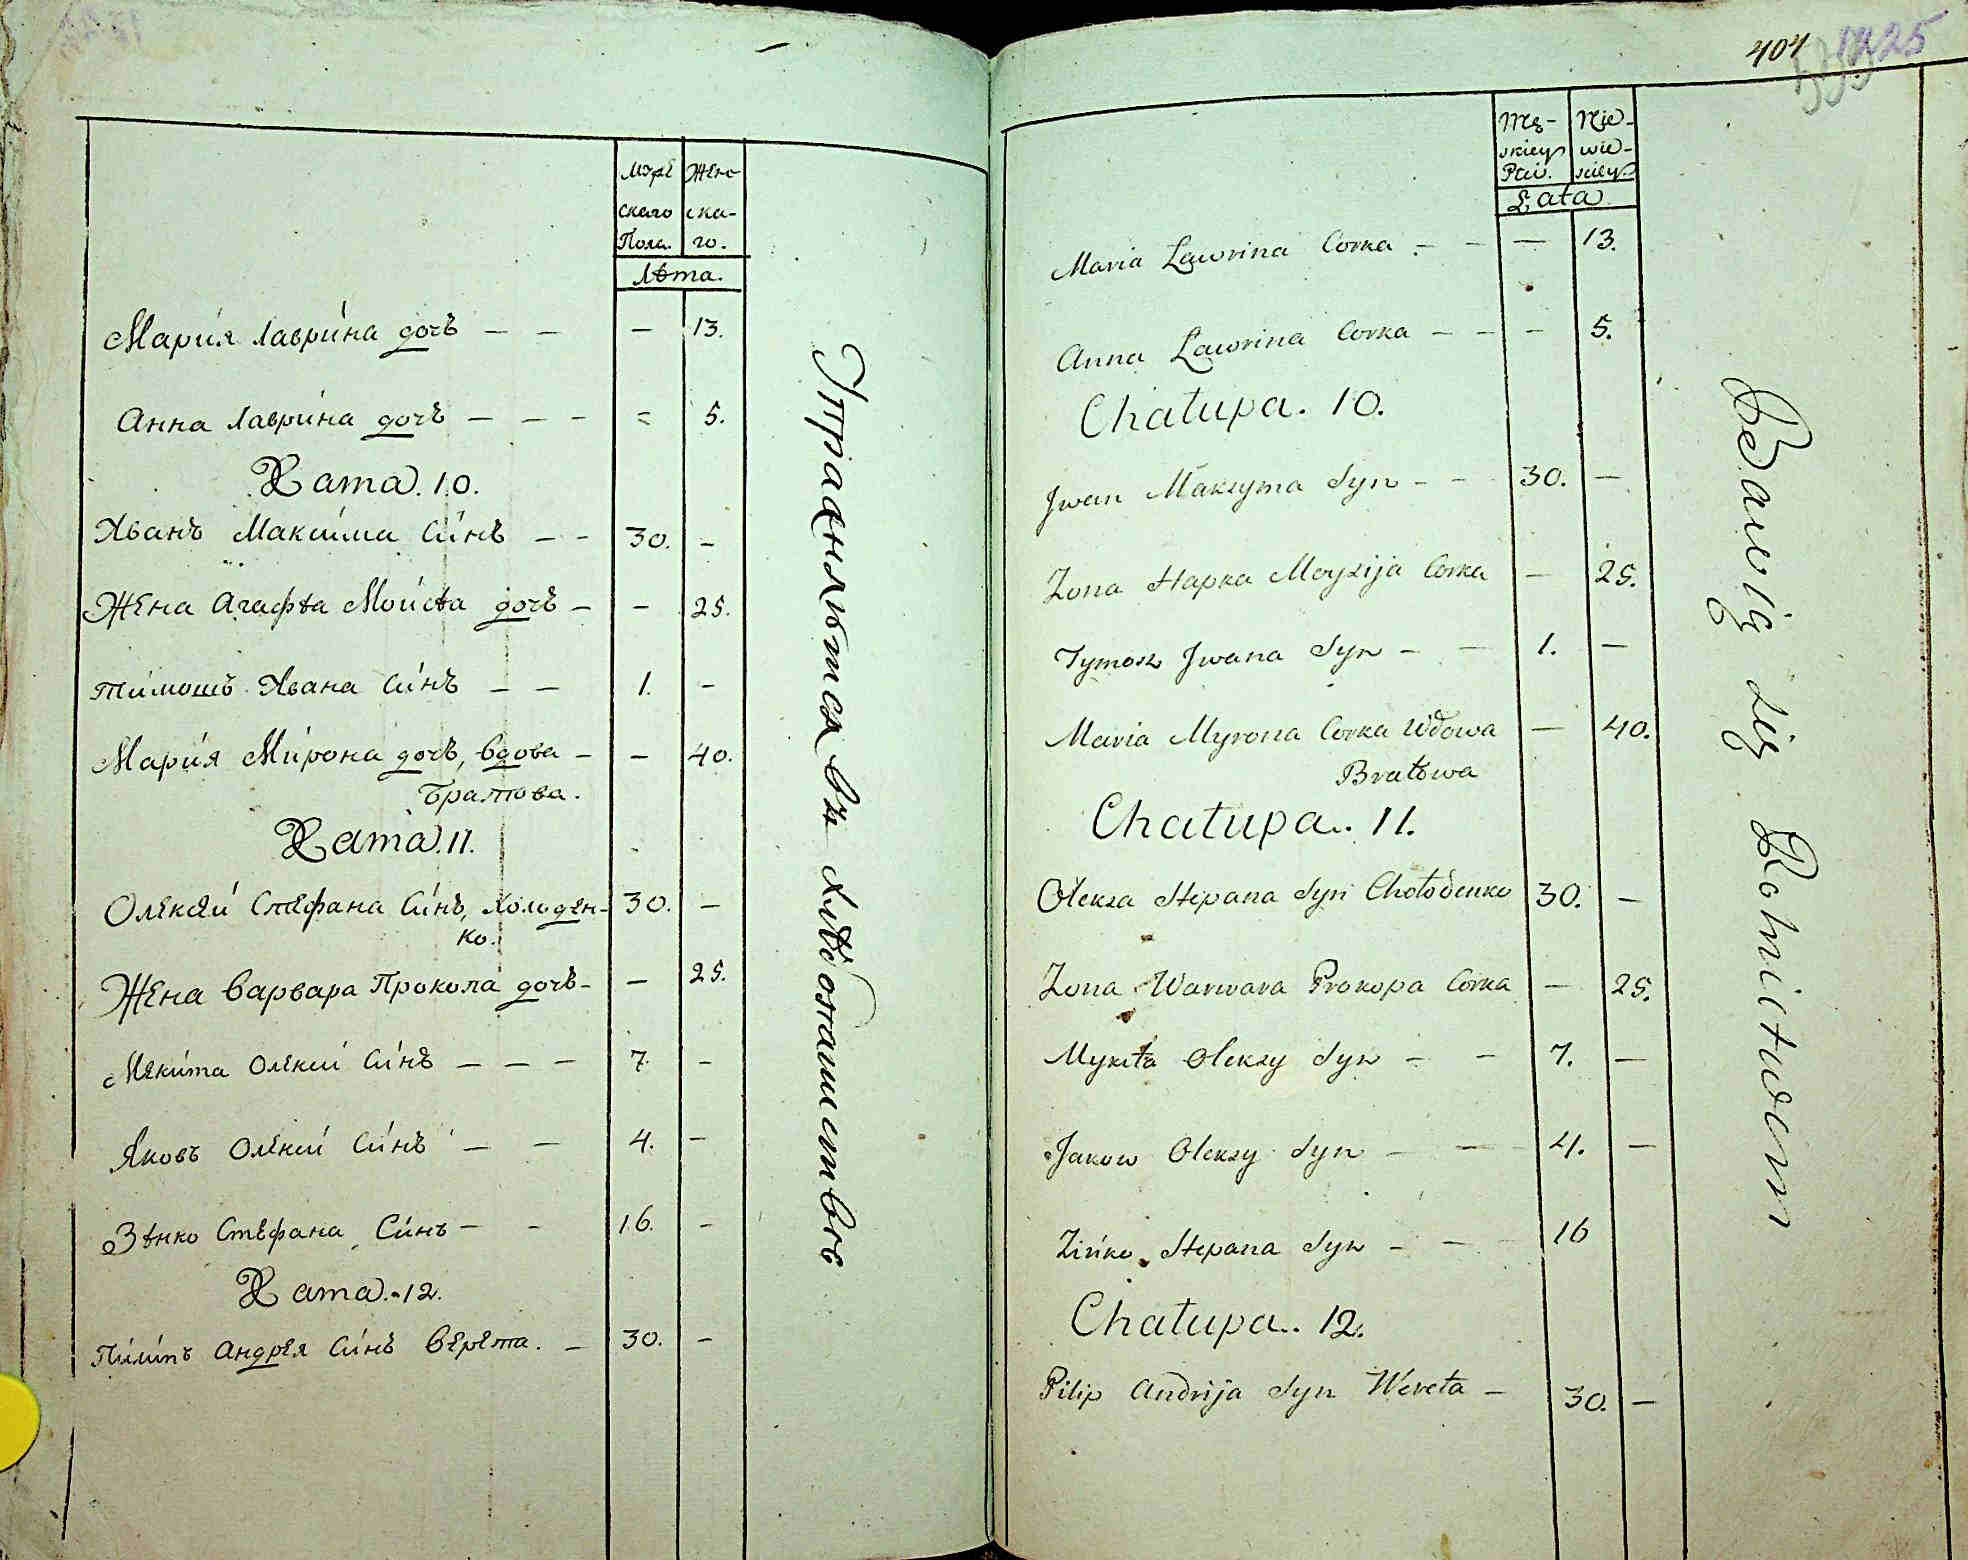 Мужескаго Пола. Женскаго.
Лѣта.
Марія Лаврина дочь — — — 13.
Анна Лаврина дочь — — — = 5.
Хата. 10.
Иванъ Максима Синъ — — 30. —
Жена Агафѣа Моисѣа дочь — — 25.
Тимошъ Ивана Синъ — — 1. —
Марія Мирона дочь, вдова — — 40.
Братова.
Хата. 11.
Олексѣй Стефана Синъ, Холоден- 30. —
ко.
Жена Варвара Прокопа дочь — — 25.
Микита Олексій Синъ — — — 7. —
Яковъ Олексій Синъ — — 4. —
Зѣнко Стефана Синъ — — 16. —
Хата. 12.
Пилипъ Андрея Синъ Верета. — 30. —
Упражняются въ хлѣбопашествѣ
404 1225
Męskiey Płci. Niewieściey.
Lata
Maria Lawrina Corka — — — 13.
Anna Lawrina Corka — — — 5.
Chałupa. 10.
Jwan Maksyma Syn — — 30. —
Zona Hapka Moysija Corka — 25.
Tymosz Jwana Syn — — 1. —
Maria Myrona Corka Wdowa — 40.
Bratowa
Chałupa. 11.
Olexa Stepana Syn Chołodenko 30. —
Zona Warwara Prokopa Corka — 25.
Mykita Olexy Syn — — 7. —
Jakow Olexy Syn — — 4. —
Zińko Stepana Syn — — 16
Chałupa. 12.
Pilip Andrija Syn Wereta — 30. —
Bawią się Rolnictwem